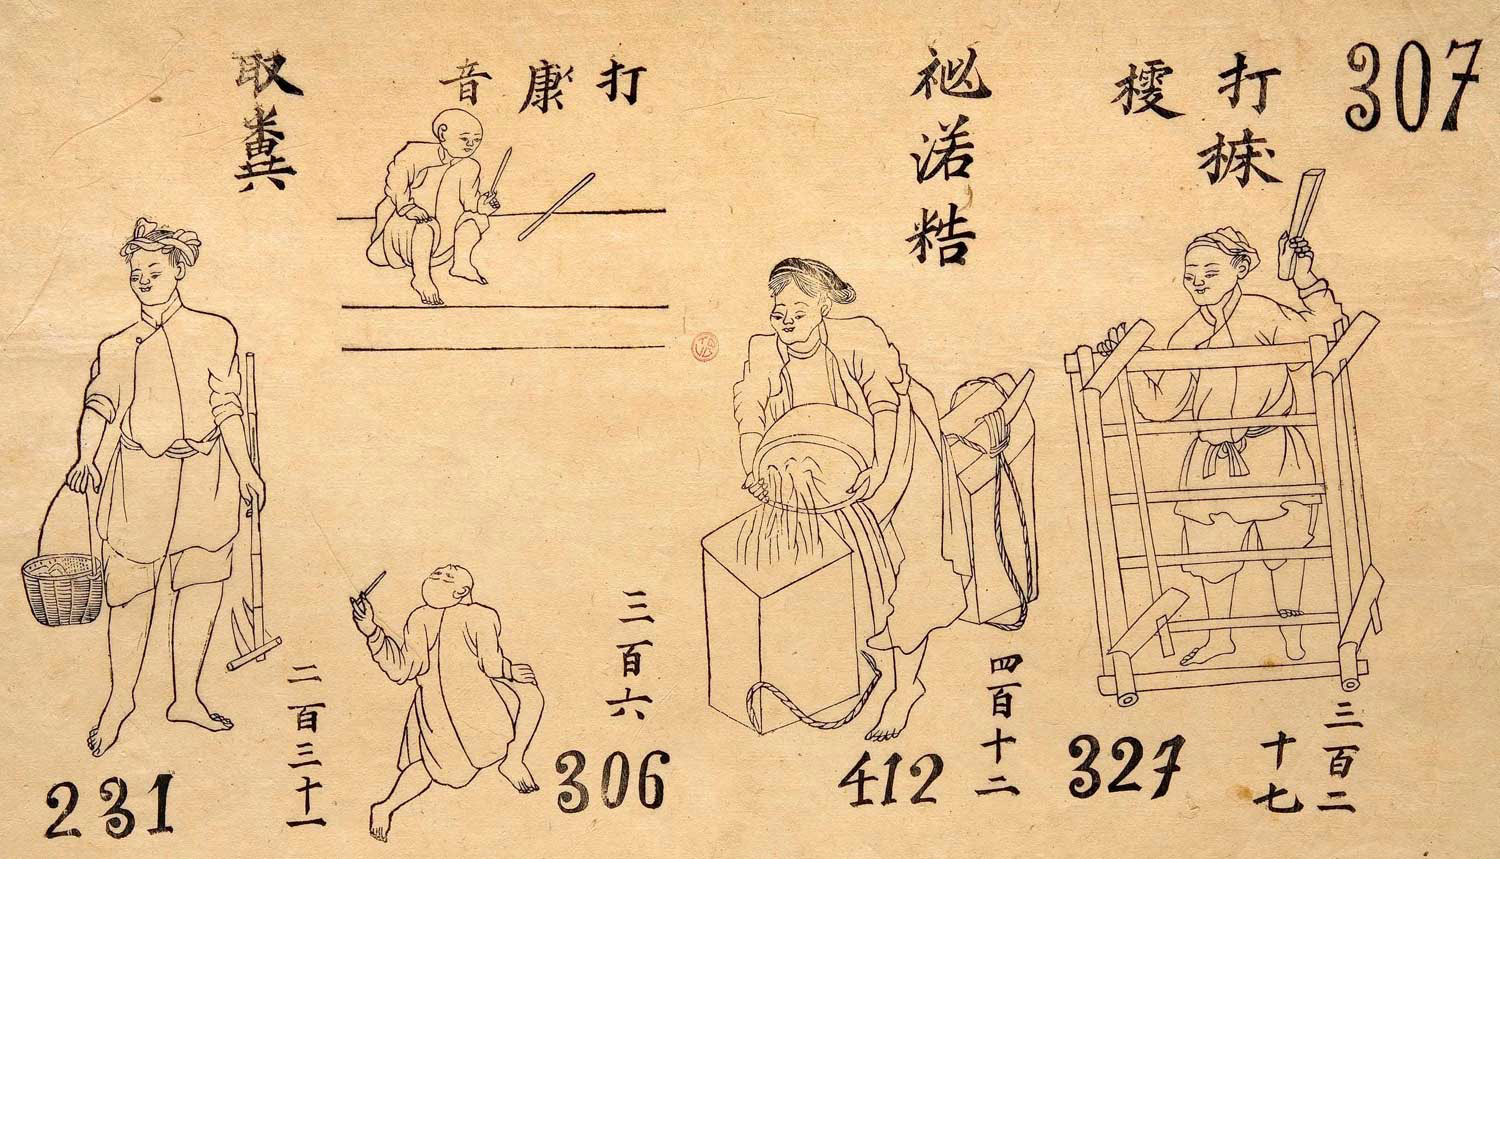 307
打
327
三百二
十七
渃
412
四百十二
打康音
306
三百六
取糞
231
二百三十一